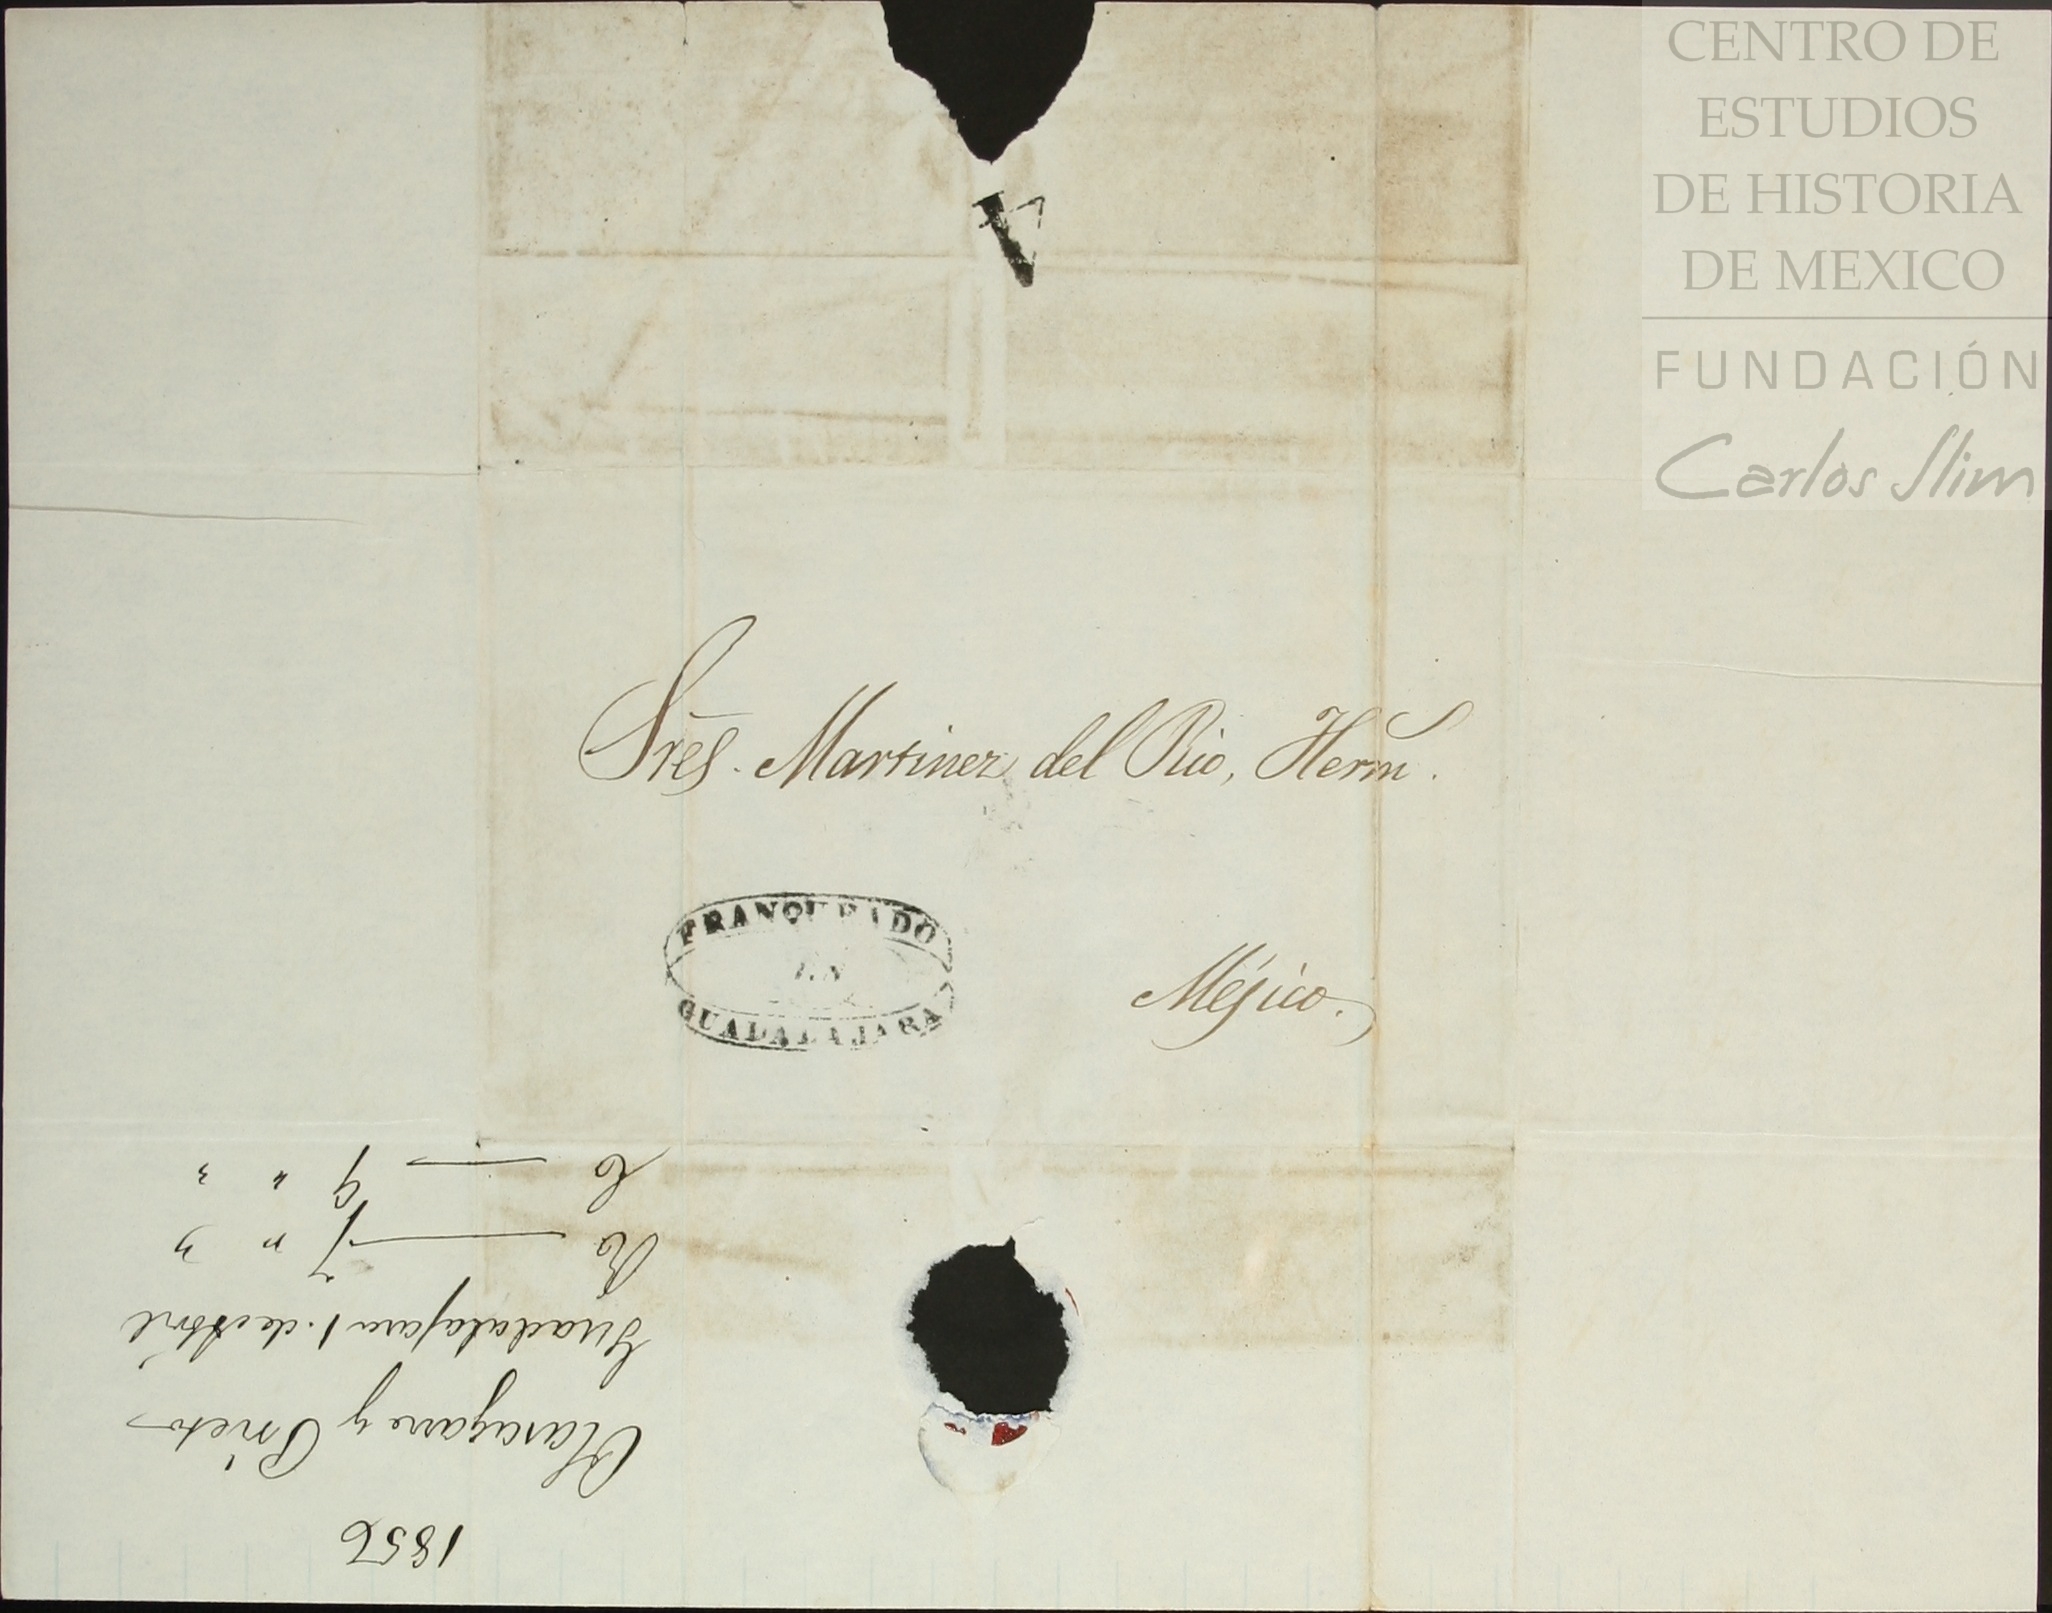 CENTRO DE
ESTUDIOS
DE HISTORIA
DE MEXICO
FUNDACIÓN
Carlos Slim
Sres. Martinez del Rio, Herm.
FRANQUEADO
EN
GUADALAJARA
Méjico.
1856
Olasagarre y Prieto
Guadalajara 1. de Abril
R 7 " "
C 9 " "